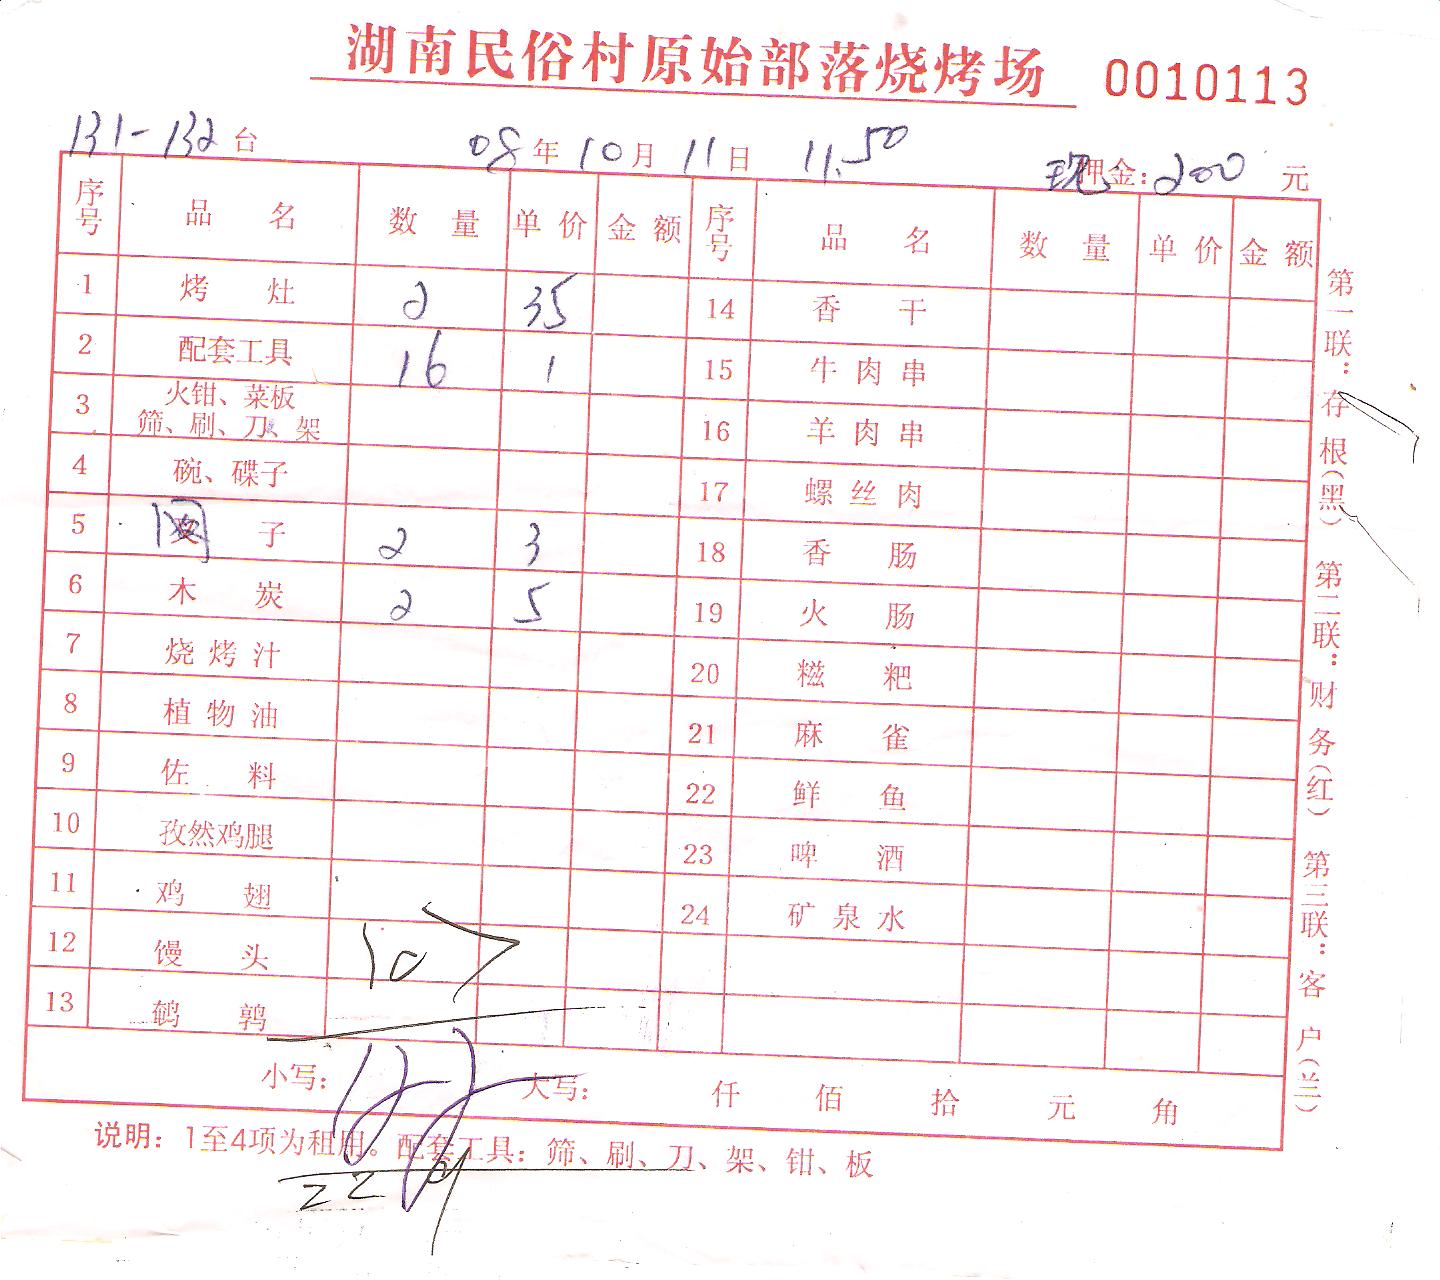 湖南民俗村原始部落烧烤场 0010113
131-132 台 08 年 10 月 11 日 11.50 现 押金: 200 元
序号 品 名 数 量 单 价 金 额 序号 品 名 数 量 单 价 金 额
1 烤 灶 2 35 14 香 干
2 配套工具 16 1 15 牛肉串
3 火钳、菜板 筛、刷、刀、架 16 羊肉串
4 碗、碟子 17 螺丝肉
5 网 子 2 3 18 香 肠
6 木 炭 2 5 19 火 肠
7 烧烤汁 20 糍 粑
8 植物油 21 麻 雀
9 佐 料 22 鲜 鱼
10 孜然鸡腿 23 啤 酒
11 鸡 翅 24 矿泉水
12 馒 头
13 鹌 鹑
小写: 大写: 仟 佰 拾 元 角
说明: 1至4项为租用。配套工具: 筛、刷、刀、架、钳、板
第一联: 存根(黑) 第二联: 财务(红) 第三联: 客户(兰)